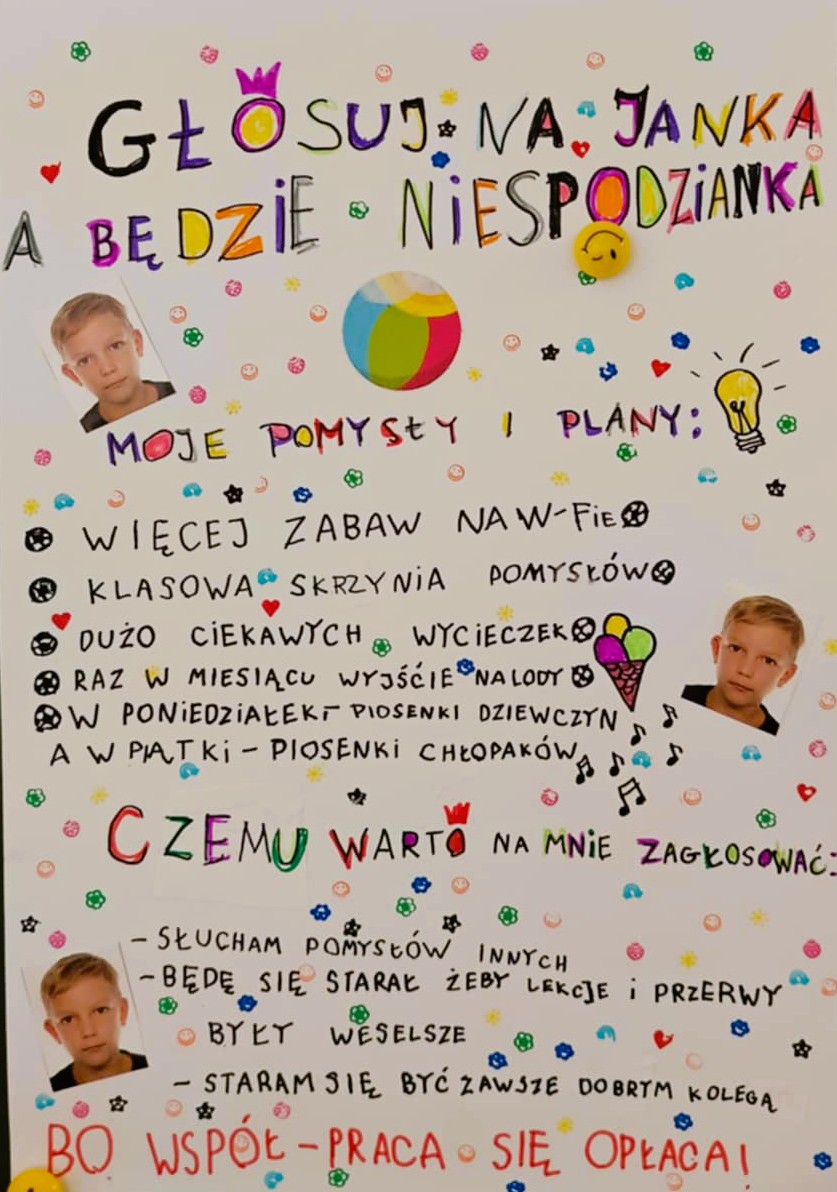 GŁOSUJ NA JANKA
A BĘDZIE NIESPODZIANKA
MOJE POMYSŁY I PLANY:
WIĘCEJ ZABAW NA W-Fie
KLASOWA SKRZYNiA POMYSŁÓW
DUŻO CiEKAWYCH WYCiECZEK
RAZ W MIESIĄCU WYJŚCIE NA LODY
W PONiEDZiAŁEKi- PIOSENKI DZIEWCZYN
A W PIĄTKi - PIOSENKi CHŁOPAKÓW
CZEMU WARTO NA MNiE ZAGŁOSOWAĆ:
- SŁUCHAM POMYSŁÓW INNYCH
- BĘDĘ SIĘ STARAŁ ŻEBY LEKCJE i PRZERWY
BYŁY WESELSZE
- STARAM SIĘ BYĆ ZAWSZE DOBRYM KOLEGĄ
BO WSPÓŁ-PRACA SIĘ OPŁACA!